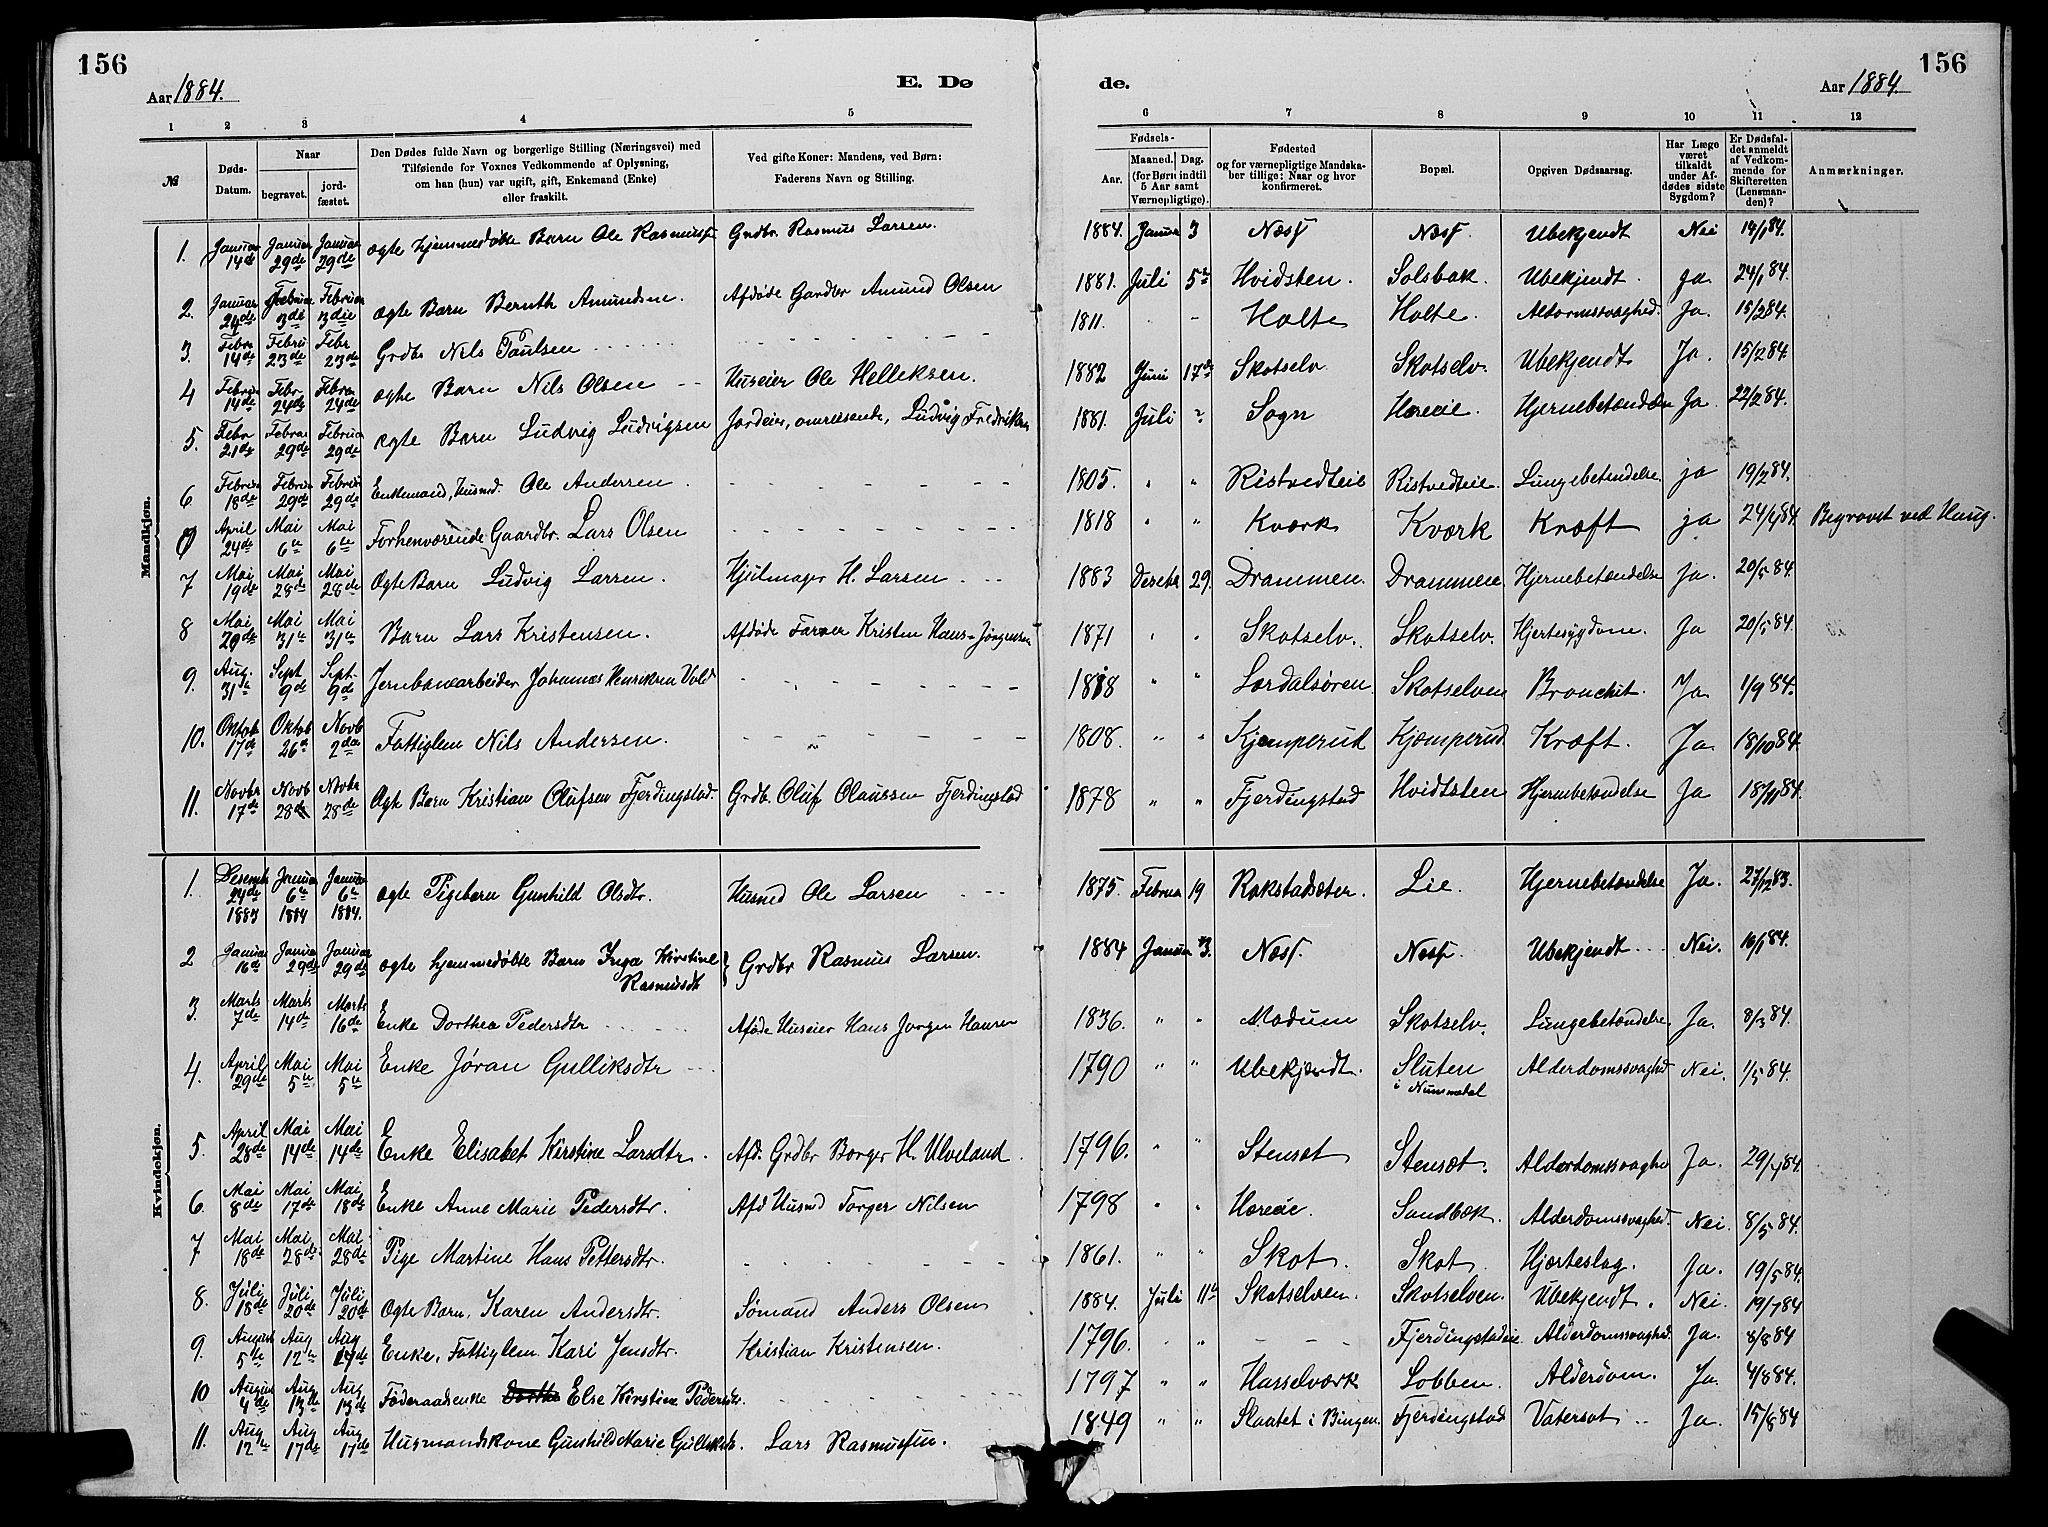 156
156
Aar 1884.
E. Dø
de.
Aar 1884.
1 2 3 4 5 6 7 8 9 10 11 12
№
Døds-Datum.
Naar
begravet.
jord-fæstet.
Den Dødes fulde Navn og borgerlige Stilling (Næringsvei) med
Tilføiende for Voxnes Vedkommende af Oplysning,
om han (hun) var ugift, gift, Enkemand (Enke)
eller fraskilt.
Ved gifte Koner: Mandens, ved Børn:
Faderens Navn og Stilling.
Fødsels-
Aar.
Maaned. Dag.
(for Børn indtil
5 Aar samt
Værnepligtige).
Fødested
og for værnepligtige Mandska-
ber tillige: Naar og hvor
konfirmeret.
Bopæl.
Opgiven Dødsaarsag.
Har Læge
været
tilkaldt
under Af-
dødes sidste
Sygdom?
Er Dødsfal-
det anmeldt
af Vedkom-
mende for
Skifteretten
(Lensman-
den)?
Anmærkninger.
Mandkjøn.
1. Januar 14de Januar 29de Januar 29de ægte hjemmedøbte Barn Ole Rasmussen Grdbr. Rasmus Larsen. 1884. Januar 3 Næss Næss. Ubekjendt Nei 14/1 84.
2. Januar 24de Februar 3die Februar 3die ægte Barn Bernth Amundsen. Afdøde Gardbr Amund Olsen 1881. Juli 5te Hvidsten. Solsbak. Ubekjendt. Ja. 24/1 84.
3. Febr 14de Febru 23de Febr 23de Grdbr Nils Paulsen 1811. Holte Holte. Altormssvaghed. Ja. 15/2 84.
4 Februar 14de Febr. 24de Februar 24de ægte Barn Nils Olsen Huseier Ole Helleksen. 1882 Juni 17de Skotselv Skotselv. Ubekjendt Ja. 15/2 84.
5. Febr 21de Februar 29de Februar 29de ægte Barn Ludvig Ludvigsen Jordeier, omreisende, Ludvig Fredriksen 1881. Juli ? Sogn Horeie. Hjernebetændelse Ja. 22/2 84.
6 Februar 18de Februar 29de Februar 29de Enkemand, Husmd. Ole Andersen. 1805. " " Ristvedteie Ristvedteie. Lungebetendelse ja 19/2 84.
0 April 24de Mai 6te Mai 6te Forhenværende Gaardbr. Lars Olsen 1818 " " Kværk Kværk Kræft ja 24/4 84. Begravet ved Haug.
7 Mai 19de Mai 28de Mai 28de Ægte Barn Ludvig Larsen. Hjulmager H. Larsen 1883 Decebr 29. Drammen. Drammen Hjernebetændelse Ja. 20/5 84.
8 Mai 20de Mai 31te Mai 31te Barn Lars Kristensen. Afdøde Farver Kristen Hans-Jørgensen 1871 " " Skotselv. Skotselv. Hjertesygdom. Ja 20/5 84.
9. Aug. 31te Sept 9de Sept. 9de Jernbanearbeider Johannes Henriksen Vold 1818 " " Lærdalsøren. Skotselven Bronchit. Ja 1/9 84.
10. Oktob 17de Oktob 26de Novb 2den Fattiglem Nils Andersen. 1808. " " Kjemperud Kjæmperud Kræft. Ja 18/10 84.
11. Novbr 17de Novb 28de Novbr 28de Ægte Barn Kristian Olufsen Fjerdingstad. Grdb. Oluf Olaussen Fjerdingstad 1878 " " Fjerdingstad Hvidtsten Hjernebetændelse Ja 18/11 84.
Kvindekjøn.
1. Desemb 24de 1883 Januar 6te 1884 Januar 6te 1884. ægte Pigebarn Gunhild Olsdtr. Husmd Ole Larsen 1875. Februar 19 Rokstadsæter. Lie. Hjernebetændelse Ja. 27/12 83.
2 Januar 16de Januar 29de Januar 29de ægte hjemmedøbte Barn Inga Kirstine Rasmusdtr } Grdbr Rasmus Larsen. 1884 Januar 3. Næss. Næss. Ubekjendt Nei. 16/1 84.
3. Marts 7de Marts 14de Marts 16de Enke Dorthea Pedersdtr Afdøde Huseier Hans Jørgen Hansen 1836. " " Modum Skotselv. Lungebetændelse. Ja. 8/3 84.
4. April 29de Mai 5te Mai 5te Enke Jøran Gulliksdtr 1790 " " Ubekjendt. Sluten i Nummedal Alderdomssvaghed Nei. 1/5 84.
5. April 28de Mai 14de Mai 14de Enke Elisabet Kirstine Larsdtr. Afd. Grdbr Borger H. Ulveland. 1796. " " Stensæt Stensæt. Alderdomssvaghed Ja. 29/4 84.
6. Mai 8de Mai 17de Mai 18de Enke Anne Marie Pedersdtr. Afd Husmd Torger Nilsen 1798 " " Horeie. Sandbæk. Alderdomssvaghed. Nei. 8/5 84.
7 Mai 18de Mai 28de Mai 28de Pige Martine Hans Pettersdtr. 1861. " " Skot. Skot. Hjerteslag. Ja. 19/5 84.
8. Juli 18de Juli 20de Juli 20de Ægte Barn. Karen Andersdtr. Sømand Anders Olsen 1884. Juli 11te Skotselven. Skotselven. Ubekjendt. Nei. 19/7 84
9. August 5te Aug 12te Aug 17de Enke, Fattiglem Kari Jensdtr. Kristian Kristensen. 1796. " " Fjerdingstadeie Alderdomssvaghed. Ja. 8/8 84
10 August 4de Aug 13de Aug 13de Føderaadsenke Else Kirstine Pedersdtr. 1797 " " Hasselværk Lobben. Alderdom. Ja. 4/8 84.
11. Aug 12te Aug 17de Aug 17de Husmandskone Gunhild Marie Gulliksdtr. Lars Rasmussen. 1849 " " Slaatet i Bingen. Fjerdingstad Vatersot Ja. 15/8 84